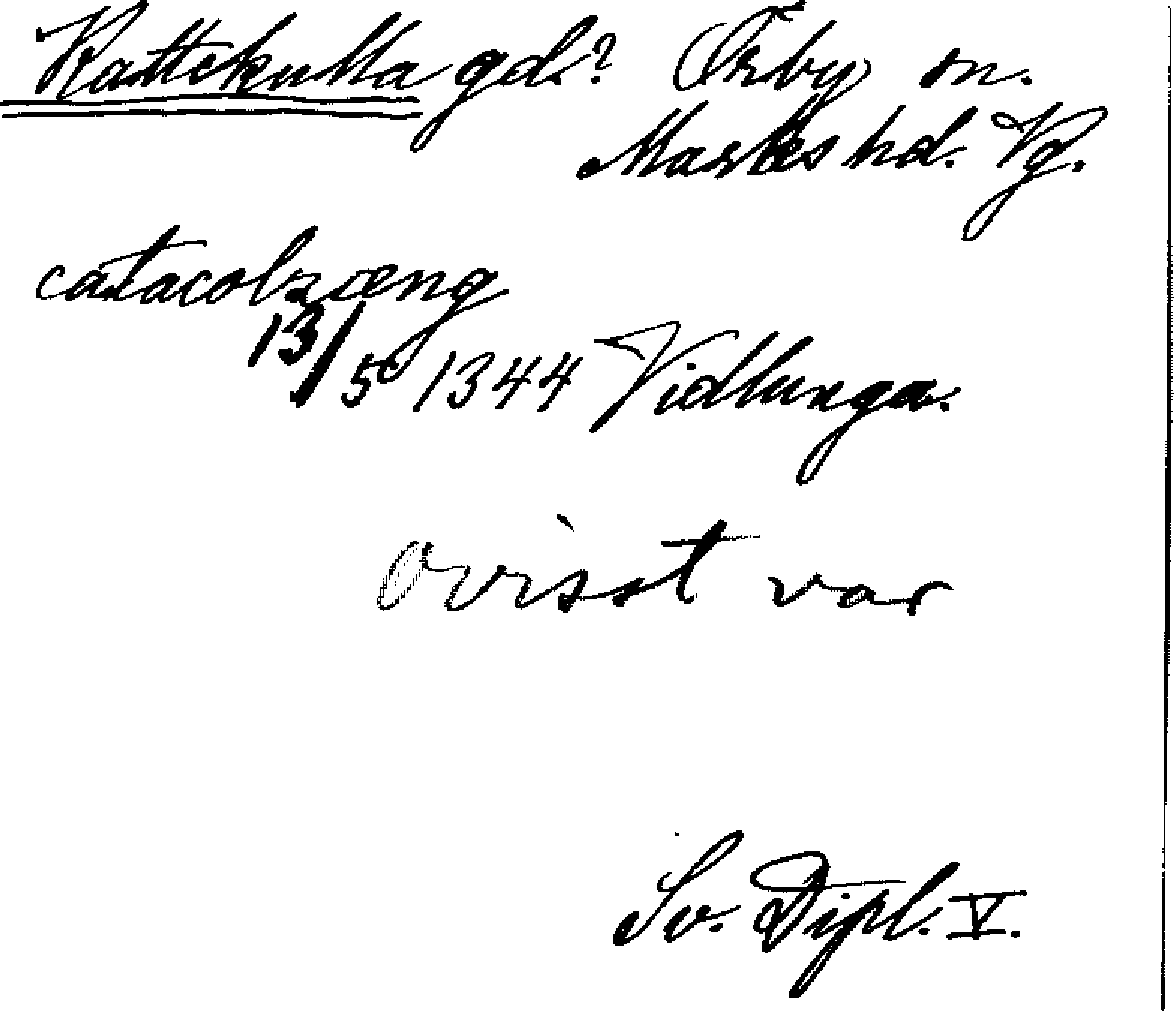 Kattekulla gd.? Örby sn.
Marks hd. Vg.
catacolzæng
13/5 1344 Vidlunga.
Ovisst var
Sv. Dipl. V.